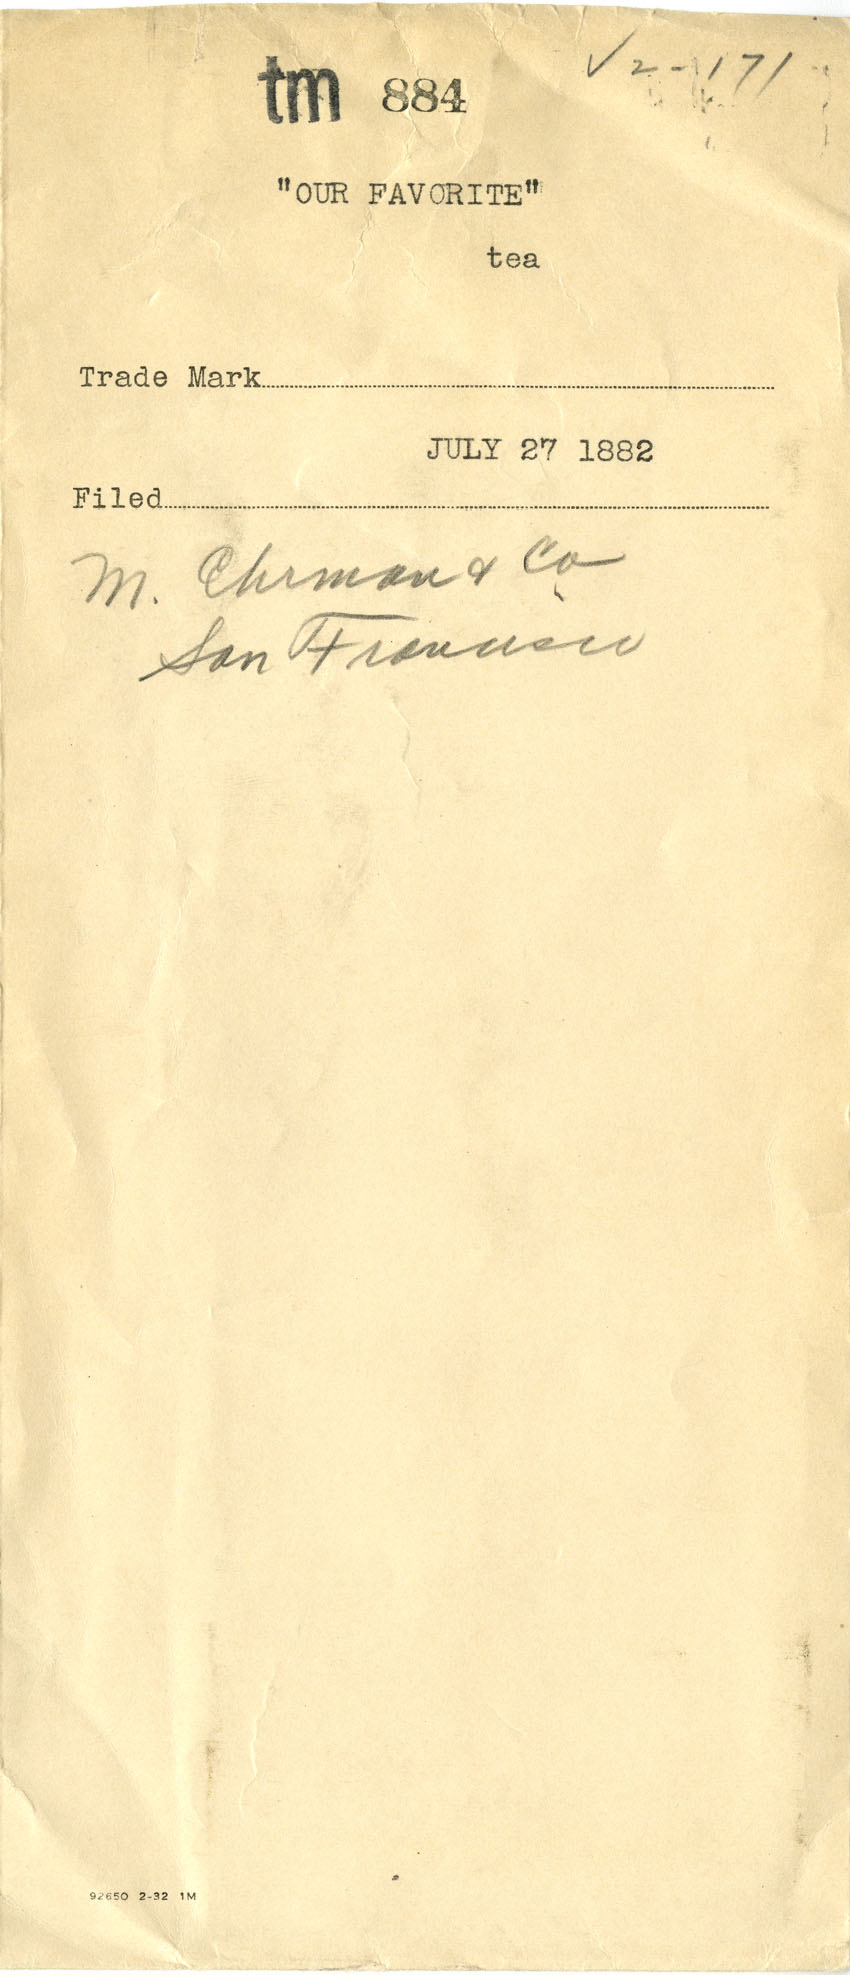 tm 884
√2-171
"OUR FAVORITE"
tea
Trade Mark
JULY 27 1882
Filed
M. Ehrman & Co
San Francisco
92650 2-32 1M